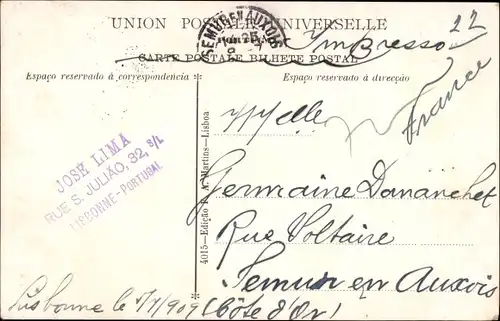 UNION POSTALE UNIVERSELLE
22
SEMUR-EN-AUXOIS
Impresso
CARTE POSTALE BILHETE POSTAL
Espaço reservado á correspondencia
Espaço reservado á direcção
France
JOSÉ LIMA
RUE S. JULIÃO, 32, S/L
LISBONNE-PORTUGAL
4015-Edição F. A. Martins-Lisboa
Melle
Germaine Dananchet
Rue Voltaire
Semur en Auxois
(Côte d'Or)
Lisbonne le 5/7/909